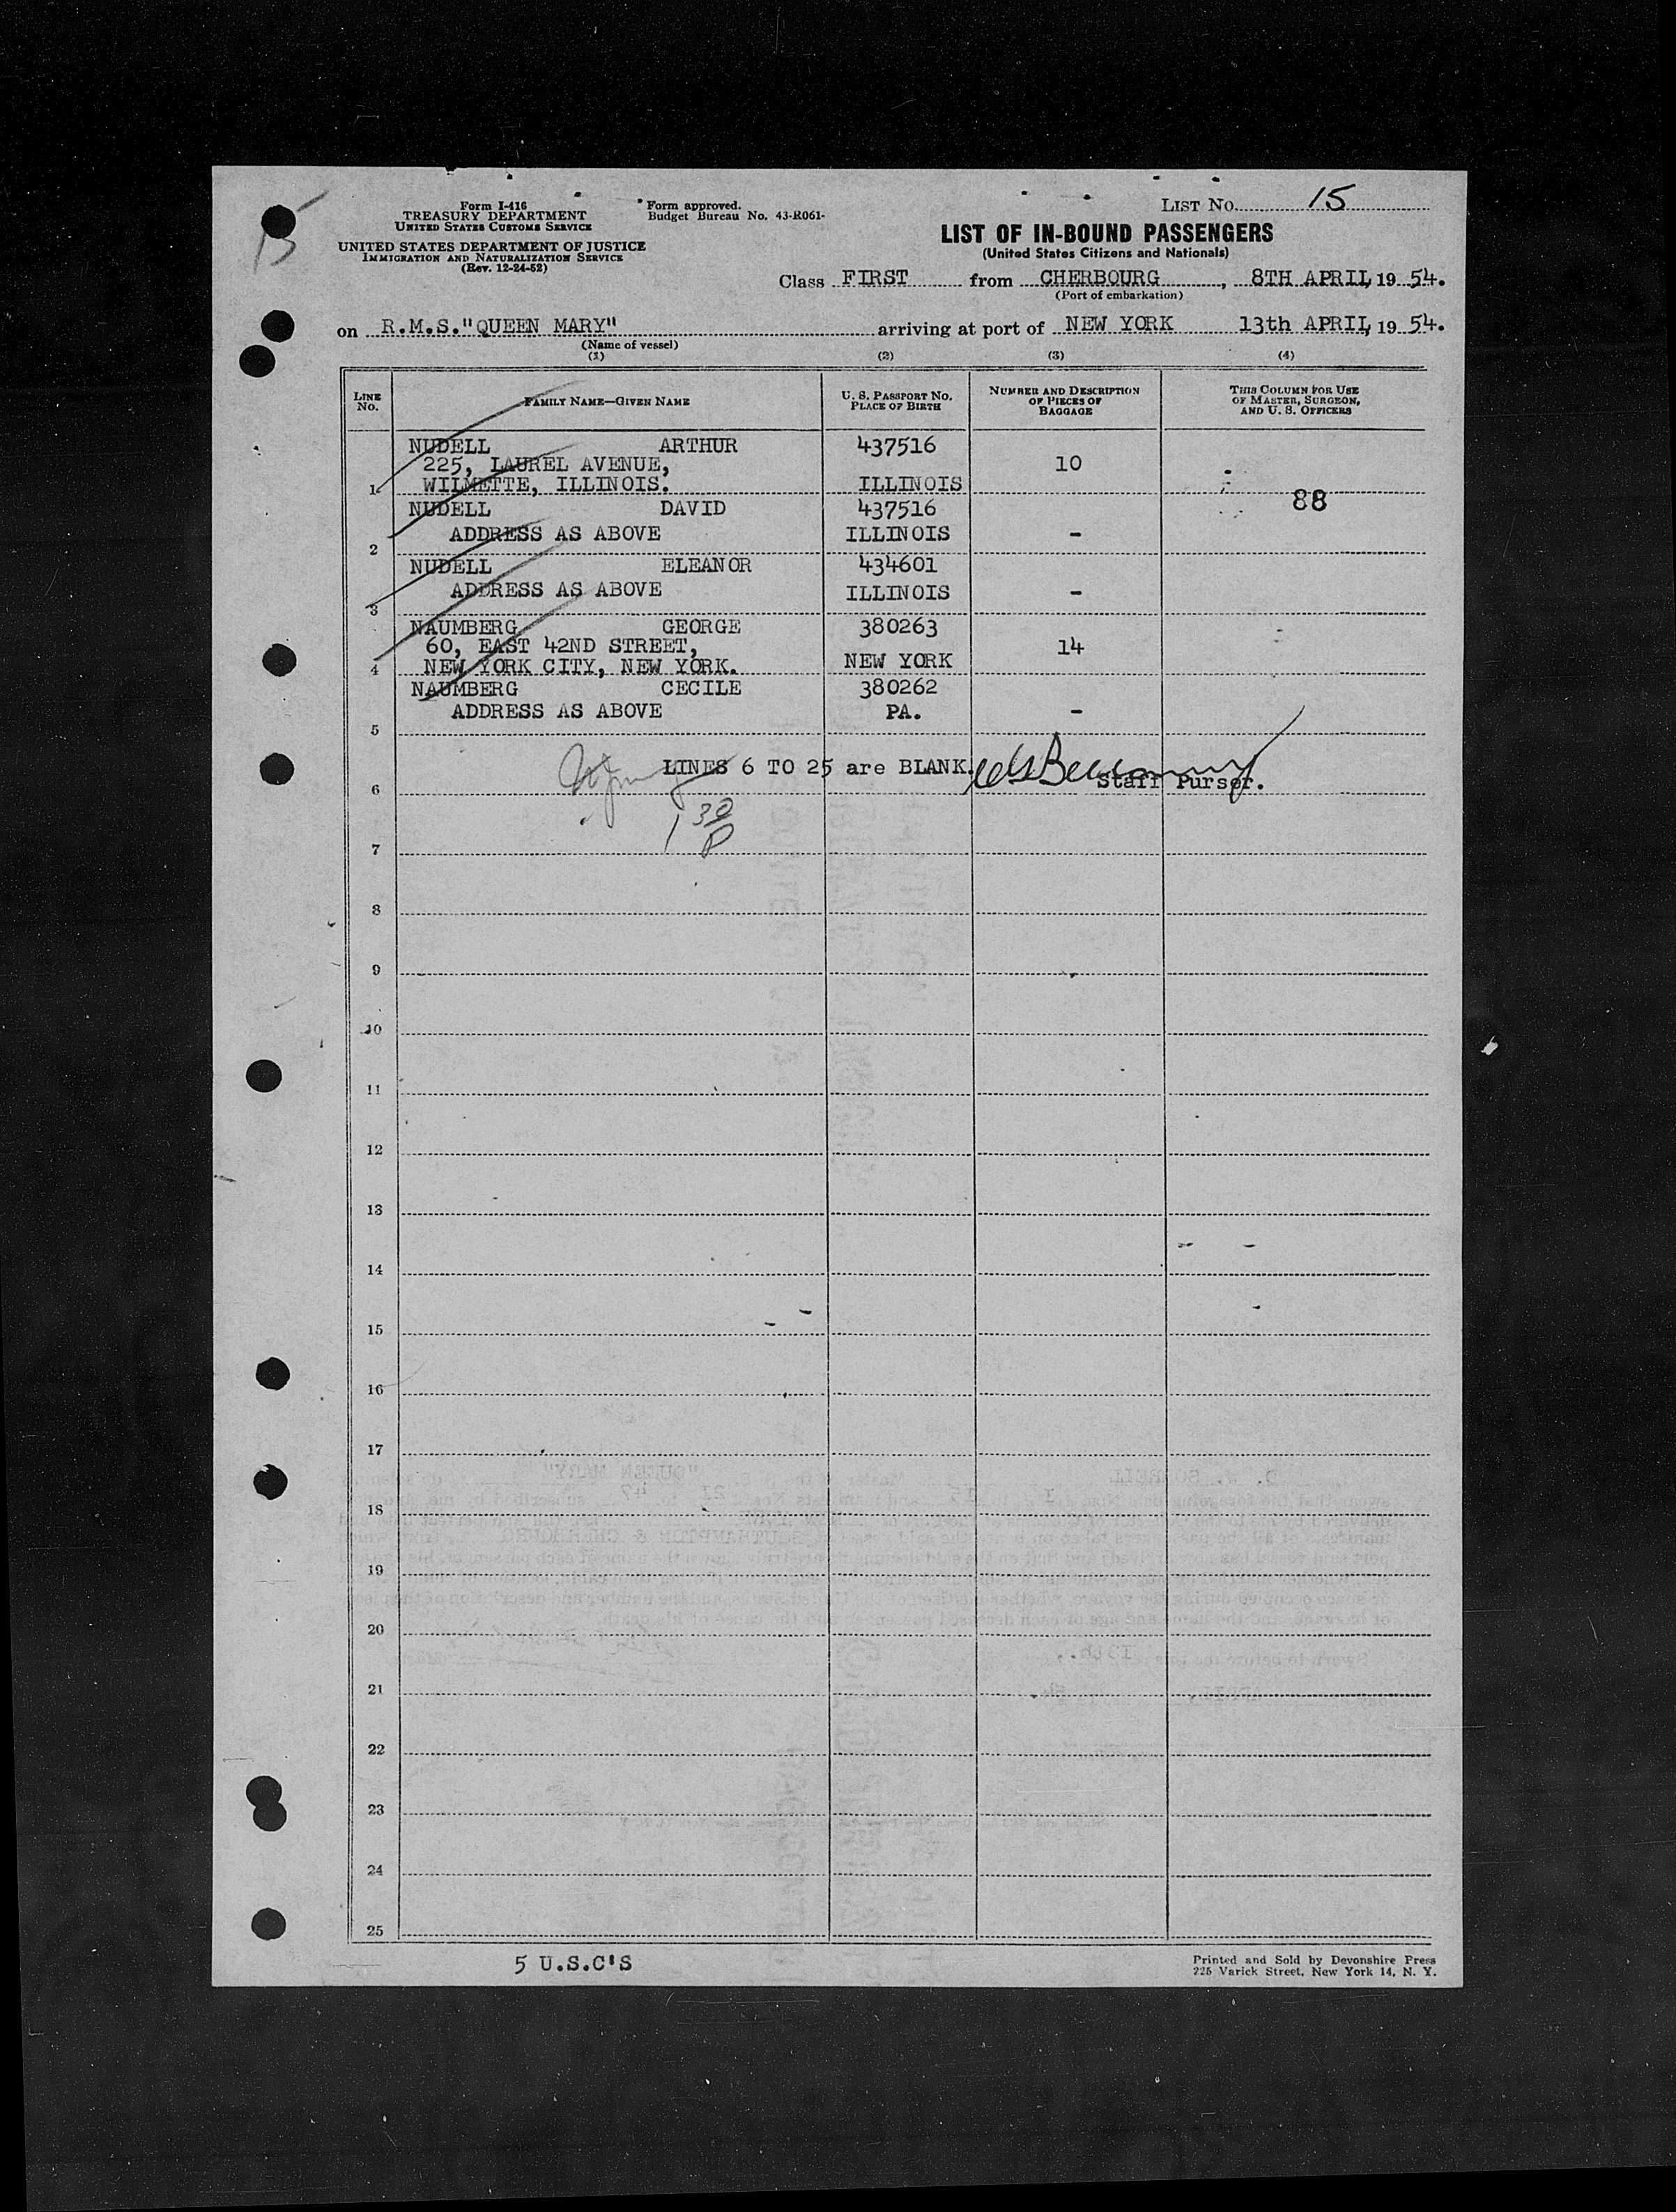 Form I-416
TREASURY DEPARTMENT
UNITED STATES CUSTOMS SERVICE
UNITED STATES DEPARTMENT OF JUSTICE
IMMIGRATION AND NATURALIZATION SERVICE
(Rev. 12-24-52)
Form approved.
Budget Bureau No. 43-R061-
LIST NO. 15
15
LIST OF IN-BOUND PASSENGERS
(United States Citizens and Nationals)
Class FIRST from CHERBOURG, 8TH APRIL, 19 54.
(Port of embarkation)
on R.M.S."QUEEN MARY" arriving at port of NEW YORK 13th APRIL, 19 54.
(Name of vessel)
(1) (2) (3) (4)
LINE NO. FAMILY NAME—GIVEN NAME U. S. PASSPORT NO. PLACE OF BIRTH NUMBER AND DESCRIPTION OF PIECES OF BAGGAGE THIS COLUMN FOR USE OF MASTER, SURGEON, AND U. S. OFFICERS
NUDELL ARTHUR 437516
225, LAUREL AVENUE, 10
1 WILMETTE, ILLINOIS. ILLINOIS
NUDELL DAVID 437516 88
ADDRESS AS ABOVE ILLINOIS -
2
NUDELL ELEANOR 434601
ADDRESS AS ABOVE ILLINOIS -
3
NAUMBERG GEORGE 380263
60, EAST 42ND STREET, 14
4 NEW YORK CITY, NEW YORK. NEW YORK
NAUMBERG CECILE 380262
ADDRESS AS ABOVE PA. -
5
LINES 6 TO 25 are BLANK.
Staff Purser.
6
1 30 P
7
8
9
10
11
12
13
14
15
16
17
18
19
20
21
22
23
24
25
5 U.S.C'S
Printed and Sold by Devonshire Press
225 Varick Street, New York 14, N. Y.